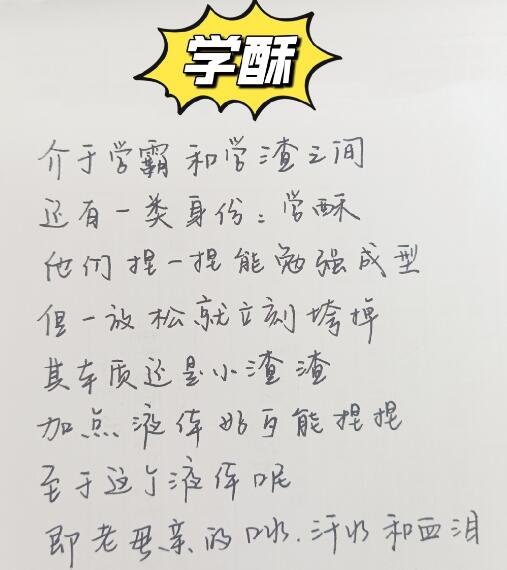 学酥
介于学霸和学渣之间
还有一类身份：学酥
他们捏一捏能勉强成型
但一放松就立刻垮掉
其本质还是小渣渣
加点液体奶可能捏捏
至于这个液体呢
即老母亲的口水.汗水和血泪